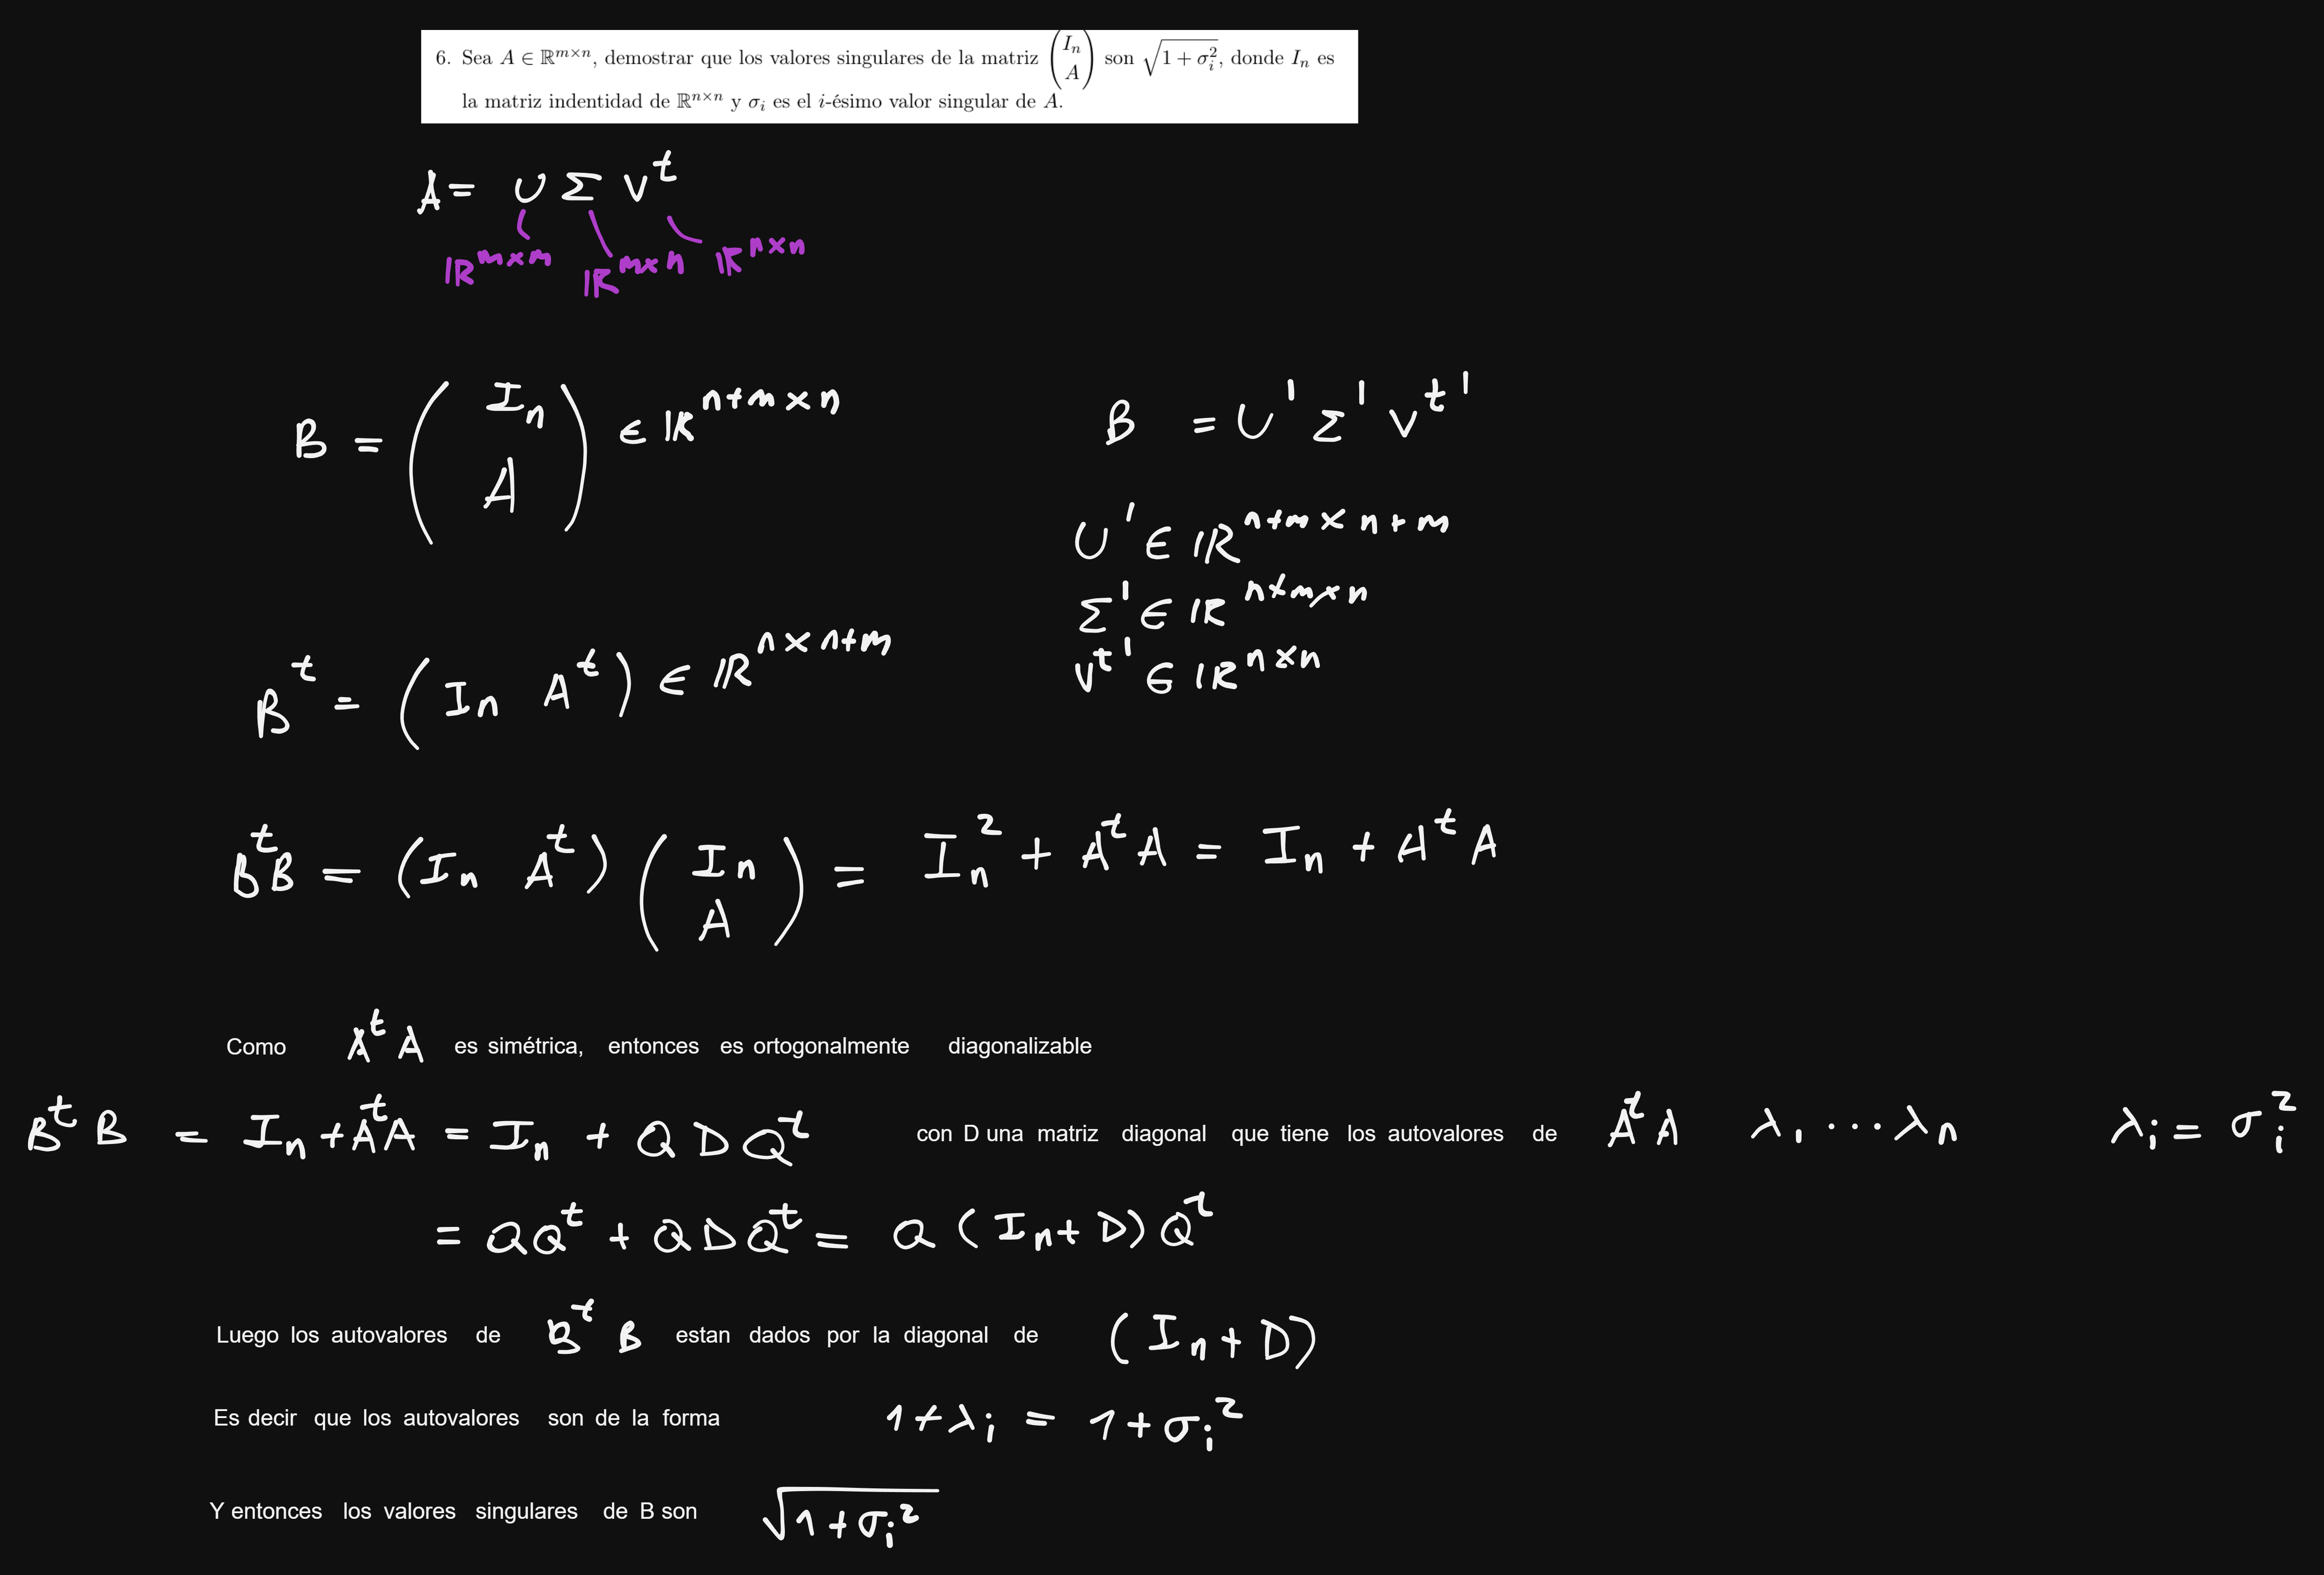 6. Sea A ∈ ℝ^{m×n}, demostrar que los valores singulares de la matriz (I_n ; A) son √(1 + σ_i^2), donde I_n es
la matriz indentidad de ℝ^{n×n} y σ_i es el i-ésimo valor singular de A.
A = U Σ V^t
ℝ^{m×m} ℝ^{m×n} ℝ^{n×n}
B = (I_n ; A) ∈ ℝ^{n+m×n}
B = U' Σ' V^t'
U' ∈ ℝ^{n+m×n+m}
Σ' ∈ ℝ^{n+m×n}
V^t' ∈ ℝ^{n×n}
B^t = (I_n A^t) ∈ ℝ^{n×n+m}
B^t B = (I_n A^t) (I_n ; A) = I_n^2 + A^t A = I_n + A^t A
Como A^t A es simétrica, entonces es ortogonalmente diagonalizable
B^t B = I_n + A^t A = I_n + Q D Q^t con D una matriz diagonal que tiene los autovalores de A^t A λ_1 ... λ_n λ_i = σ_i^2
= Q Q^t + Q D Q^t = Q (I_n + D) Q^t
Luego los autovalores de B^t B estan dados por la diagonal de (I_n + D)
Es decir que los autovalores son de la forma 1 + λ_i = 1 + σ_i^2
Y entonces los valores singulares de B son √(1 + σ_i^2)